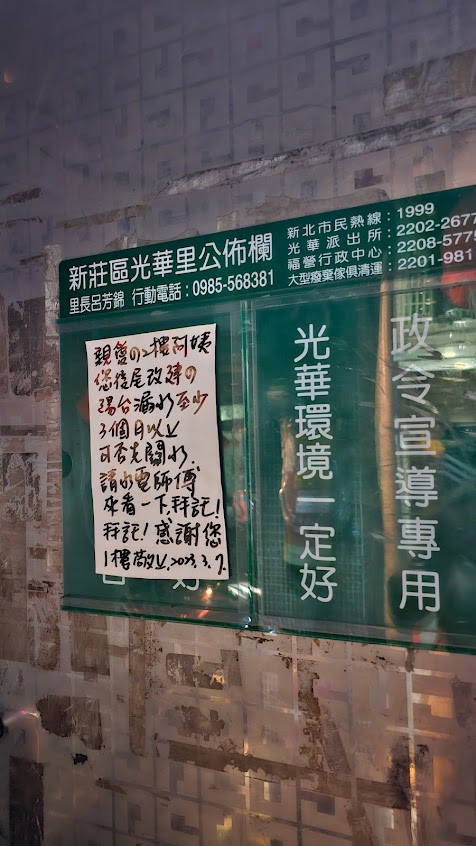 新莊區光華里公佈欄
里長呂芳錦 行動電話：0985-568381
新北市民熱線：1999
光華派出所：2202-2677
福營行政中心：2208-5775
大型廢棄傢俱清運：2201-981
親愛の2樓阿姨
您後屋改建の
陽台漏水至少
3個月以上
可否先關水.
請水電師傅
來看一下.拜託!
拜託! 感謝您
1樓敬上.2023.3.7.
好
光華環境一定好
政令宣導專用